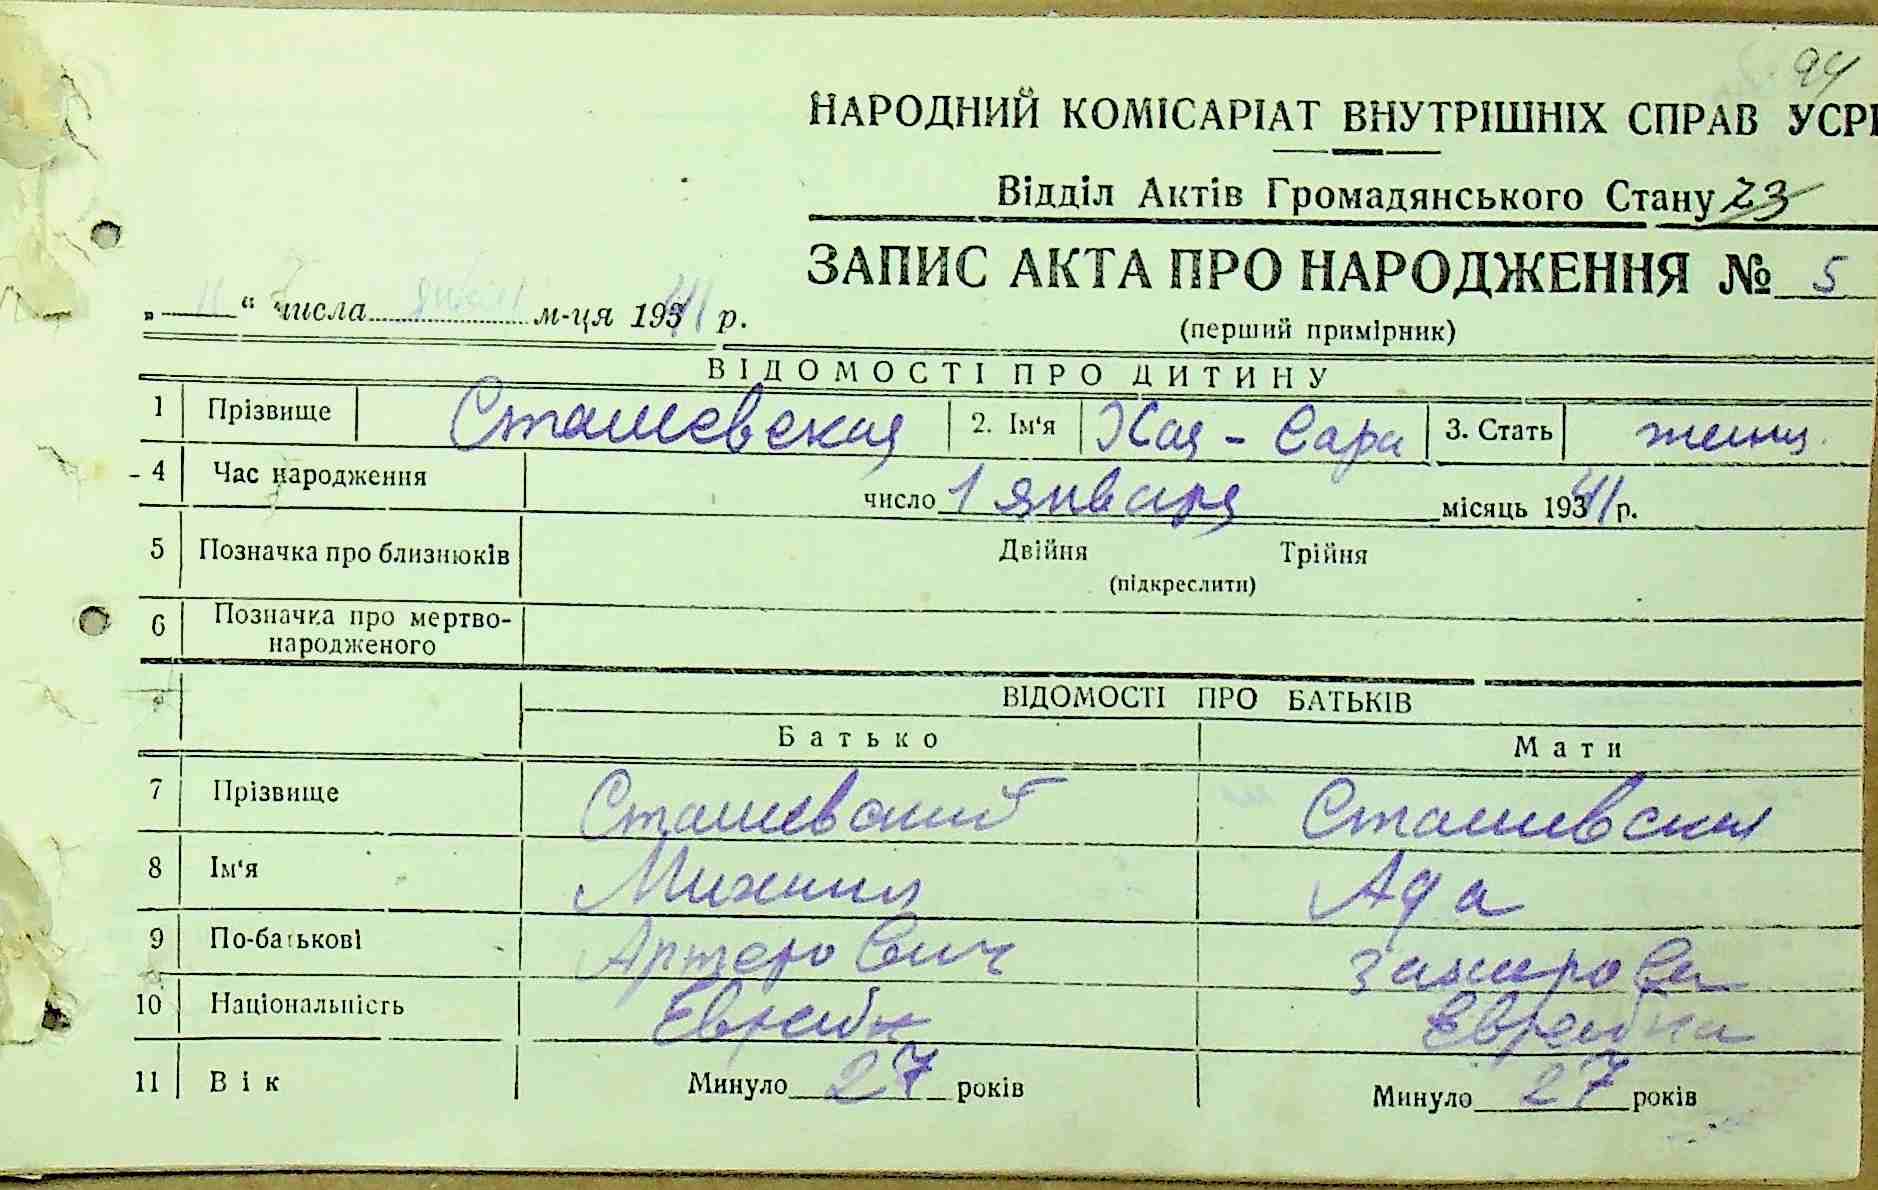 94
НАРОДНИЙ КОМІСАРІАТ ВНУТРІШНІХ СПРАВ УСРР
Відділ Актів Громадянського Стану 23
ЗАПИС АКТА ПРО НАРОДЖЕННЯ № 5
„ “ числа м-ця 1941 р.
(перший примірник)
ВІДОМОСТІ ПРО ДИТИНУ
1 Прізвище Сташевская 2. Ім'я Хая - Сара 3. Стать женщ.
4 Час народження число 1 января місяць 1941 р.
5 Позначка про близнюків Двійня Трійня
(підкреслити)
6 Позначка про мертво-
народженого
ВІДОМОСТІ ПРО БАТЬКІВ
Батько Мати
7 Прізвище Сташевский Сташевская
8 Ім'я Михаил Ада
9 По-батькові
10 Національність Еврейка
11 Вік Минуло 27 років Минуло 27 років